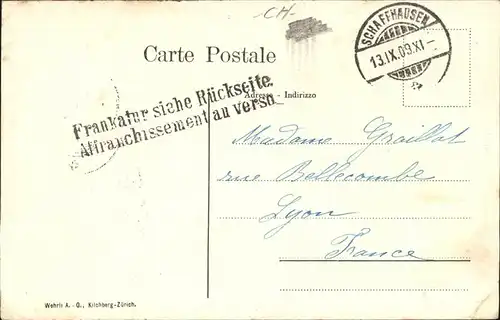 CH-
Carte Postale
SCHAFFHAUSEN
13.IX.09.XI-
Adresse - Indirizzo
Frankatur siehe Rückseite.
Affranchissement au verso
Madame Graillat
rue Bellecombe
Lyon
France
Wehrli A.-G., Kilchberg-Zürich.